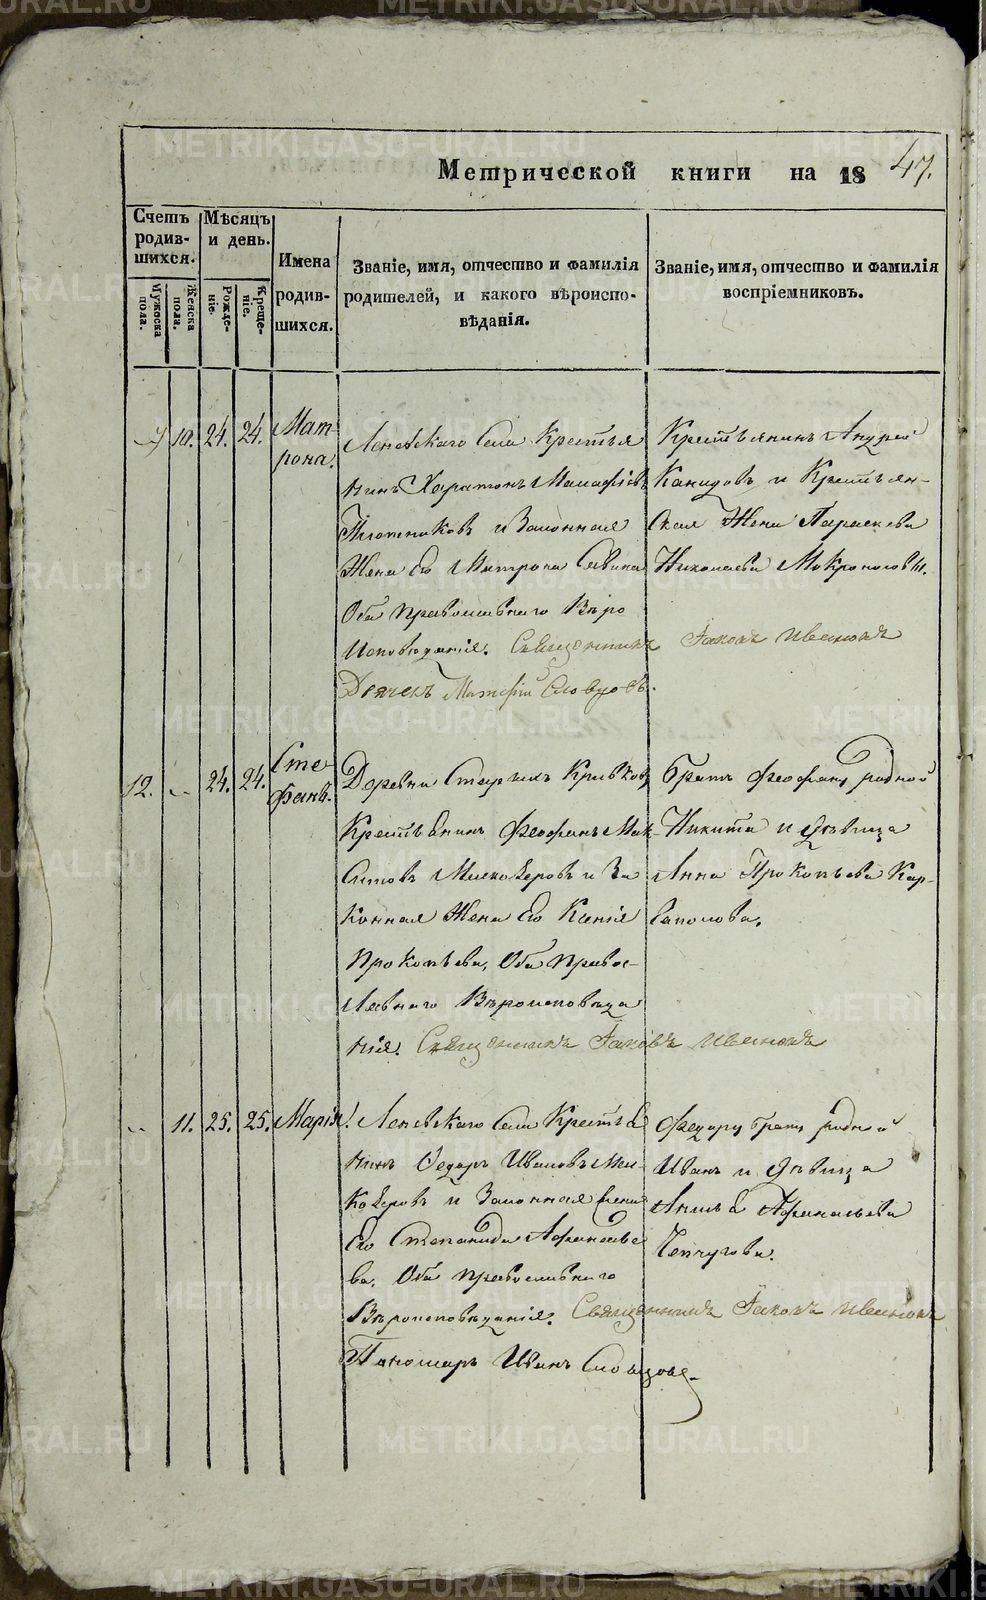 Метрической книги на 1847.
Счетъ родившихся.
Мужеска пола.
Женска пола.
Мѣсяцъ и день.
Рожденіе.
Крещеніе.
Имена родившихся.
Званіе, имя, отчество и фамилія родителей, и какого вѣроисповѣданія.
Званіе, имя, отчество и фамилія воспріемниковъ.
10. 24. 24. Мат
рона.
Леневскаго Села Крестья
нинъ Харитонъ
Плотниковъ и Законная
Жена Его Матрона Савина
Оба православнаго Вѣро
исповѣданія. Священникъ Іаковъ Ивановъ
Дьячекъ Матфій Словцовъ.
Крестьянинъ Андрей
и Крестьян-
ская Жена Параскева
Николаева Мокроносовы.
12. „ 24. 24. Сте
фанъ.
Деревни Старыхъ Кривковъ
Крестьянинъ Феофанъ Мак-
симовъ и За
конная Жена Его Ксенія
Прокопьева, Оба Право-
славнаго Вѣроисповѣда
нія. Священникъ Іаковъ Ивановъ
Братъ Феофану родной
Никита и дѣвица
Анна Прокопьева Кар-
гаполова.
„ 11. 25. 25. Марія.
Леневскаго Села Крестья
нинъ Федоръ Ивановъ Мин-
кѣеровъ и Законная Жена
Его Степанида Афанасье
ва. Оба православнаго
Вѣроисповѣданія. Священникъ Іаковъ Ивановъ
Пономарь Иванъ Словцовъ.
Федору братъ родной
Иванъ и дѣвица
Анисья Афанасьева
Чепчугова.
METRIKI.GASO-URAL.RU